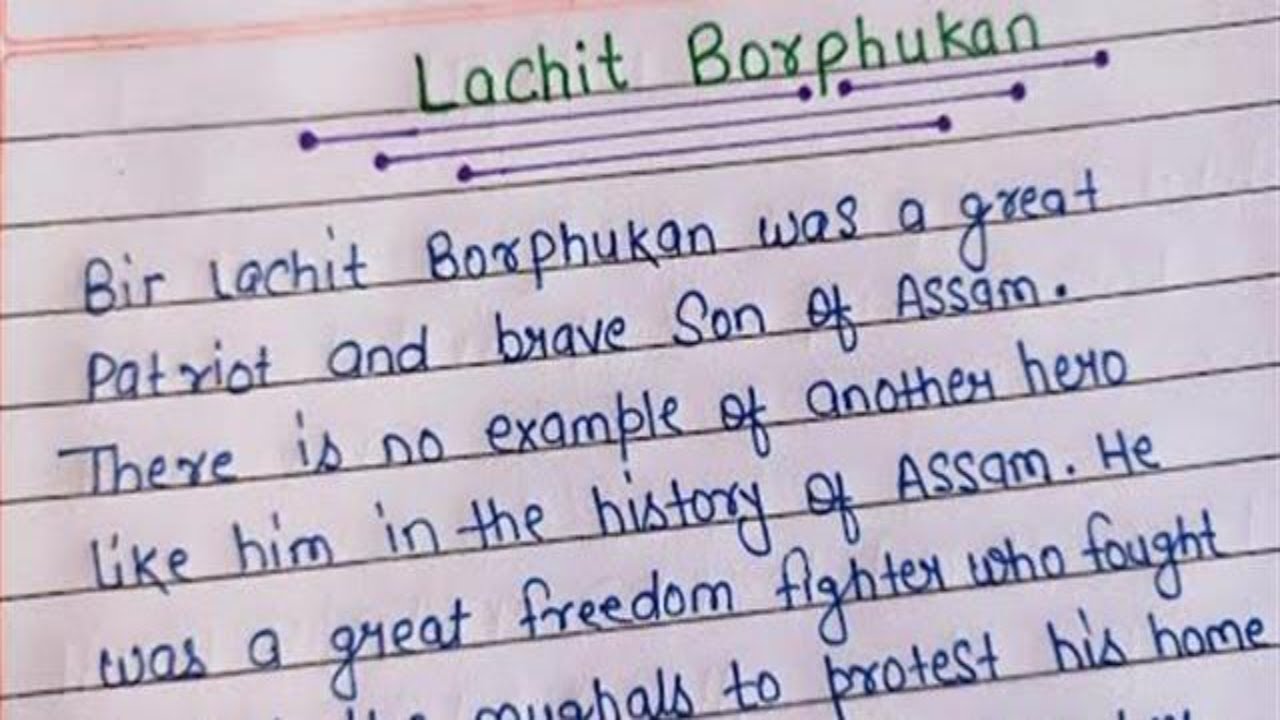 Lachit Borphukan
Bir Lachit Borphukan was a great
Patriot and brave Son of Assam.
There is no example of another hero
like him in the history of Assam. He
was a great freedom fighter who fought
the mughals to protest his home